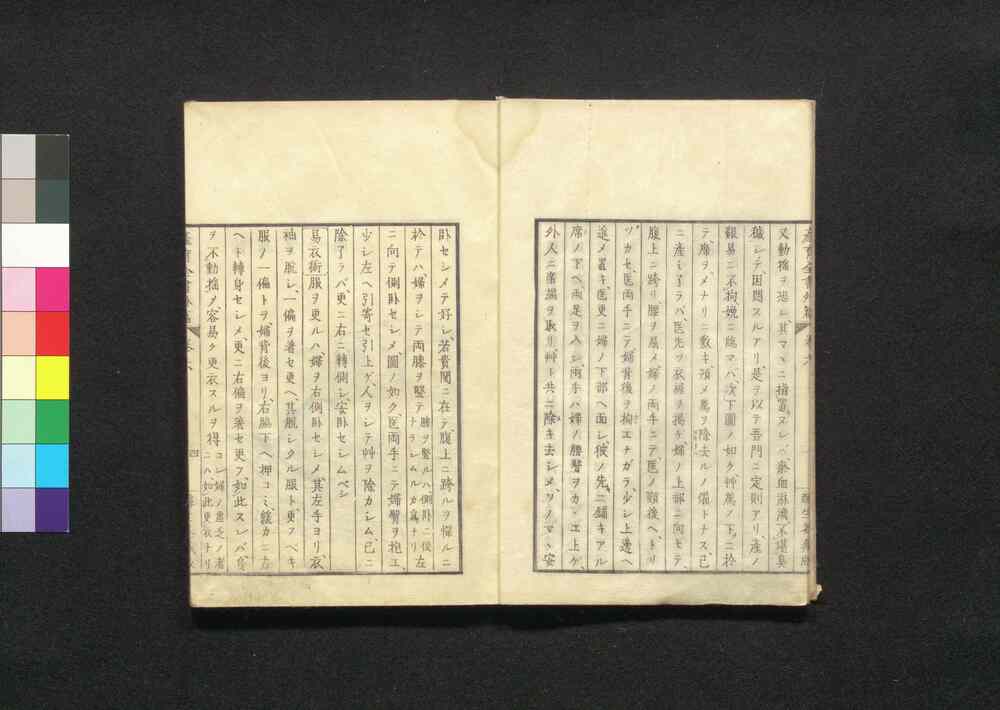 又動揺ヲ恐レ其マヽニ指置ヌレバ瘀血淋漓不堪臭
穢シテ困悶スルアリ是ヲ以テ吾門ニ定則アリ産ノ
難易ニ不拘娩ニ臨マバ次下圖ノ如ク艸薦ノ下ニ於
テ席ヲメナリニ敷キ預メ薦ヲ除去ルノ備トナス已
ニ産シ了ラバ医先ツ衣裾ヲ掲ケ婦ノ上部ニ向ヒテ
腹上ニ跨リ腰ヲ屈メ婦ノ両手ニテ医ノ頸後ヘトリ
ツカセ医両手ニテ婦背後ヲ抱エナガラ少シ上邊ヘ
進メ置キ医更ニ婦ノ下部ヘ面シ彼ノ先ニ鋪キアル
席ノ下ヘ両足ヲ入レ両手ハ婦ノ腰臀ヲカヽエ上ゲ
外人ニ席端ヲ取リ艸ト共ニ除キ去シメソノマヽ安
卧セシメテ好シ若貴閨ニ在テ腹上ニ跨ルヲ憚ルニ
於テハ婦ヲシテ両膝ヲ竪テ
膝ヲ竪ルハ側卧ニ便
ナラシムルカ為ナリ
左
ニ向テ側卧セシメ圖ノ如ク医両手ニテ婦臀ヲ抱エ
少シ左ヘ引寄セ引上ゲ人ヲシテ艸ヲ除カシム已ニ
除了ラバ更ニ右ニ轉側シ安卧セシムベシ
易衣術服ヲ更ルハ婦ヲ右側卧セシメ其左手ヨリ衣
袖ヲ脱シ一偏ヲ著セ更ヘ其脱シクル服ト更フベキ
服ノ一偏トヲ婦背後ヨリ右脇下ヘ押コミ緩カニ左
ヘト轉身セシメ更ニ右偏ヲ著セ更フ如此スレバ身
ヲ不動揺ノ容易ク更衣スルヲ得
コレ婦ノ虚乏ノ者
ニハ如此更衣ナリ
四